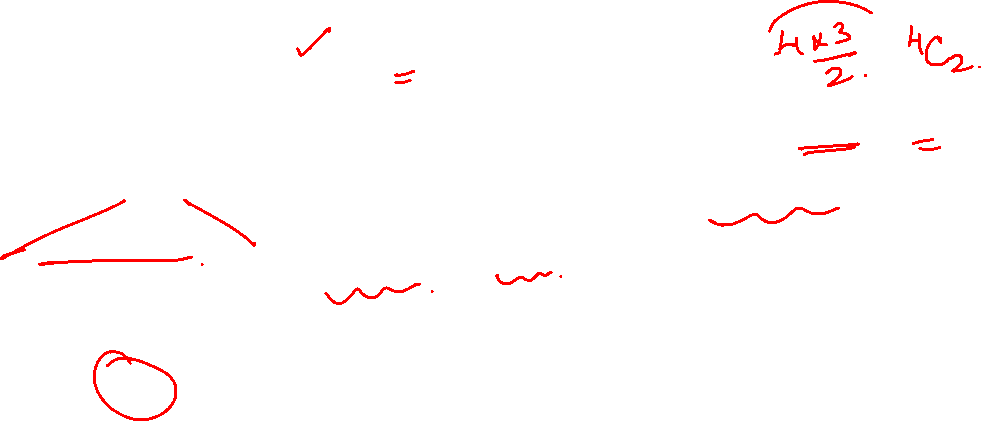 =
4×3/2. ⁴C₂.
=